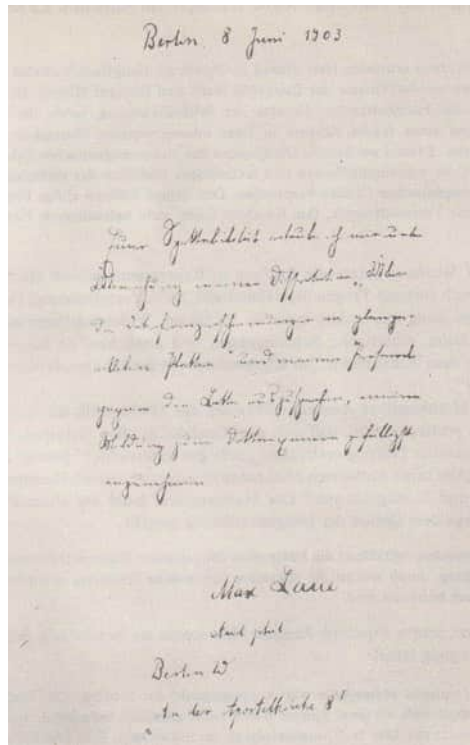 Berlin, 8 Juni 1903
Eurer Spektabilität erlaube ich mir unter
Übersendung meiner Dissertation „Über
die Interferenzerscheinungen an planpar-
allelen Platten" und meiner Zeugnisse
die Bitte auszusprechen, meine
Meldung zum Doktorexamen gefälligst
anzunehmen
Max Laue
cand phil
Berlin W
An der Apostelkirche 8